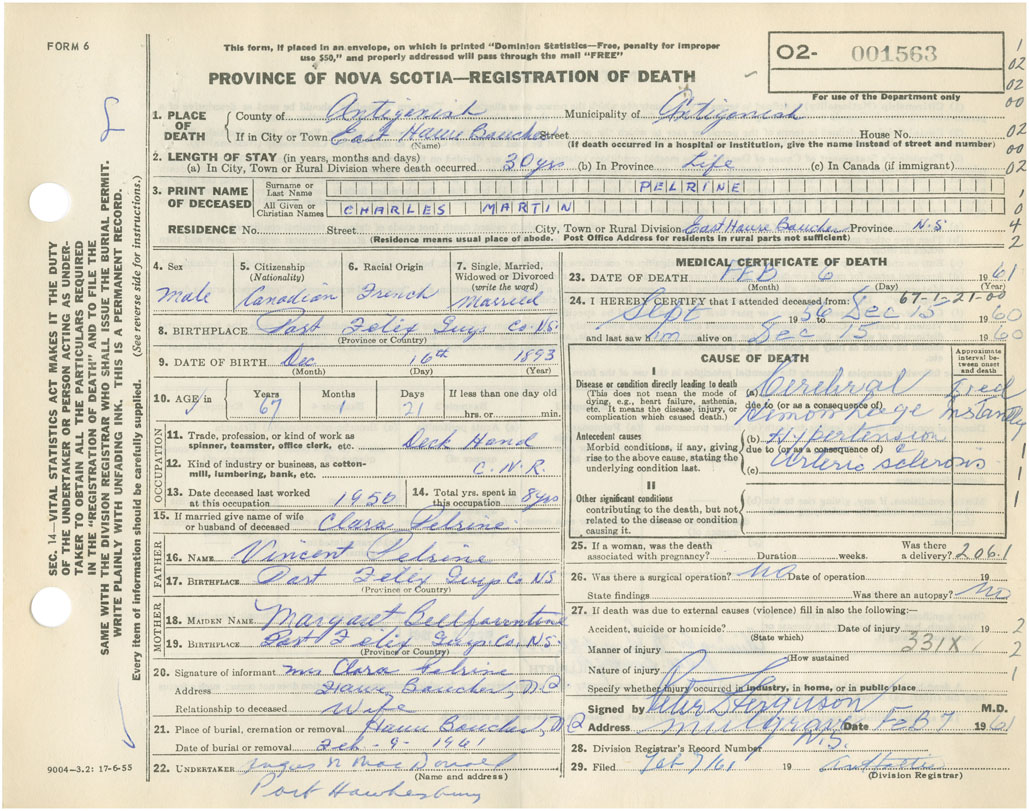 FORM 6
This form, if placed in an envelope, on which is printed "Dominion Statistics—Free, penalty for improper
use $50," and properly addressed will pass through the mail "FREE"
PROVINCE OF NOVA SCOTIA—REGISTRATION OF DEATH
O2- 001563
For use of the Department only
1. PLACE OF DEATH
County of Antigonish Municipality of Antigonish
If in City or Town East Havre Boucher Street House No.
(Name) (If death occurred in a hospital or institution, give the name instead of street and number)
2. LENGTH OF STAY (in years, months and days)
(a) In City, Town or Rural Division where death occurred 30 yrs (b) In Province Life (c) In Canada (if immigrant)
3. PRINT NAME OF DECEASED
Surname or Last Name PELRINE
All Given or Christian Names CHARLES MARTIN
RESIDENCE No. Street City, Town or Rural Division East Havre Boucher Province N.S
(Residence means usual place of abode. Post Office Address for residents in rural parts not sufficient)
4. Sex Male
5. Citizenship (Nationality) Canadian
6. Racial Origin French
7. Single, Married, Widowed or Divorced (write the word) Married
8. BIRTHPLACE Port Felix Guys Co. N.S.
(Province or Country)
9. DATE OF BIRTH Dec 16th 1893
(Month) (Day) (Year)
10. AGE in Years 67 Months 1 Days 21 If less than one day old hrs. or min.
OCCUPATION
11. Trade, profession, or kind of work as spinner, teamster, office clerk, etc. Deck Hand
12. Kind of industry or business, as cotton-mill, lumbering, bank, etc. C.N.R.
13. Date deceased last worked at this occupation 1956
14. Total yrs. spent in this occupation 8 yrs
15. If married give name of wife or husband of deceased Clara Pelrine
FATHER
16. NAME Vincent Pelrine
17. BIRTHPLACE Port Felix Guys Co NS
(Province or Country)
MOTHER
18. MAIDEN NAME Margaret
19. BIRTHPLACE Port Felix Guys Co. N.S.
(Province or Country)
20. Signature of informant Mrs Clara Pelrine
Address Havre Boucher
Relationship to deceased Wife
21. Place of burial, cremation or removal Havre Boucher
Date of burial or removal Feb - 9 - 1961
22. UNDERTAKER Angus MacDonald
(Name and address)
Port Hawkesbury
9004—3.2: 17-6-55
MEDICAL CERTIFICATE OF DEATH
23. DATE OF DEATH FEB 6 1961
(Month) (Day) (Year)
67-1-21-00
24. I HEREBY CERTIFY that I attended deceased from: Sept 1956 to Dec 15 1960
and last saw him alive on Dec 15 1960
CAUSE OF DEATH
Approximate interval between onset and death
I
Disease or condition directly leading to death
(This does not mean the mode of dying, e.g., heart failure, asthenia, etc. It means the disease, injury, or complication which caused death.)
(a) Cerebral Died
due to (or as a consequence of)
Hemorrhage Instantly
Antecedent causes
Morbid conditions, if any, giving rise to the above cause, stating the underlying condition last.
(b) Hypertension
due to (or as a consequence of)
(c) Arterio Sclerosis
II
Other significant conditions
contributing to the death, but not related to the disease or condition causing it.
25. If a woman, was the death associated with pregnancy? Duration weeks. Was there a delivery? 206.1
26. Was there a surgical operation? No Date of operation 19
State findings Was there an autopsy? No
27. If death was due to external causes (violence) fill in also the following:—
Accident, suicide or homicide? Date of injury 19
(State which)
Manner of injury 331X
(How sustained
Nature of injury
Specify whether injury occurred in industry, in home, or in public place
Signed by Ferguson M.D.
Address Mulgrave N.S. Date Feb 7 1961
28. Division Registrar's Record Number
29. Filed Feb 7/61 19
(Division Registrar)
SEC. 14—VITAL STATISTICS ACT MAKES IT THE DUTY
OF THE UNDERTAKER OR PERSON ACTING AS UNDER-
TAKER TO OBTAIN ALL THE PARTICULARS REQUIRED
IN THE "REGISTRATION OF DEATH" AND TO FILE THE
SAME WITH THE DIVISION REGISTRAR WHO SHALL ISSUE THE BURIAL PERMIT.
WRITE PLAINLY WITH UNFADING INK. THIS IS A PERMANENT RECORD.
Every item of information should be carefully supplied. (See reverse side for instructions.)
1
02
02
00
02
00
02
1
0
4
2
1
1
1
2
2
1